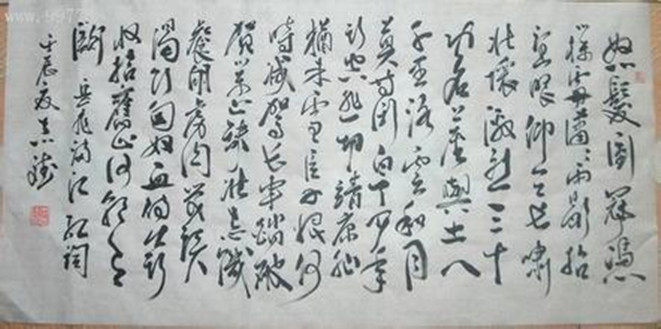 www.9977
怒髮衝冠憑
欄處瀟瀟雨歇抬
望眼仰天長嘯
壯懷激烈三十
功名塵與土八
千里路雲和月
莫等閑白了少年
頭空悲切靖康恥
猶未雪臣子恨何
時滅駕長車踏破
賀蘭山缺壯志饑
餐胡虜肉笑談
渴飲匈奴血待從頭
收拾舊山河朝天
闕 岳飛滿江紅詞
壬辰夏志